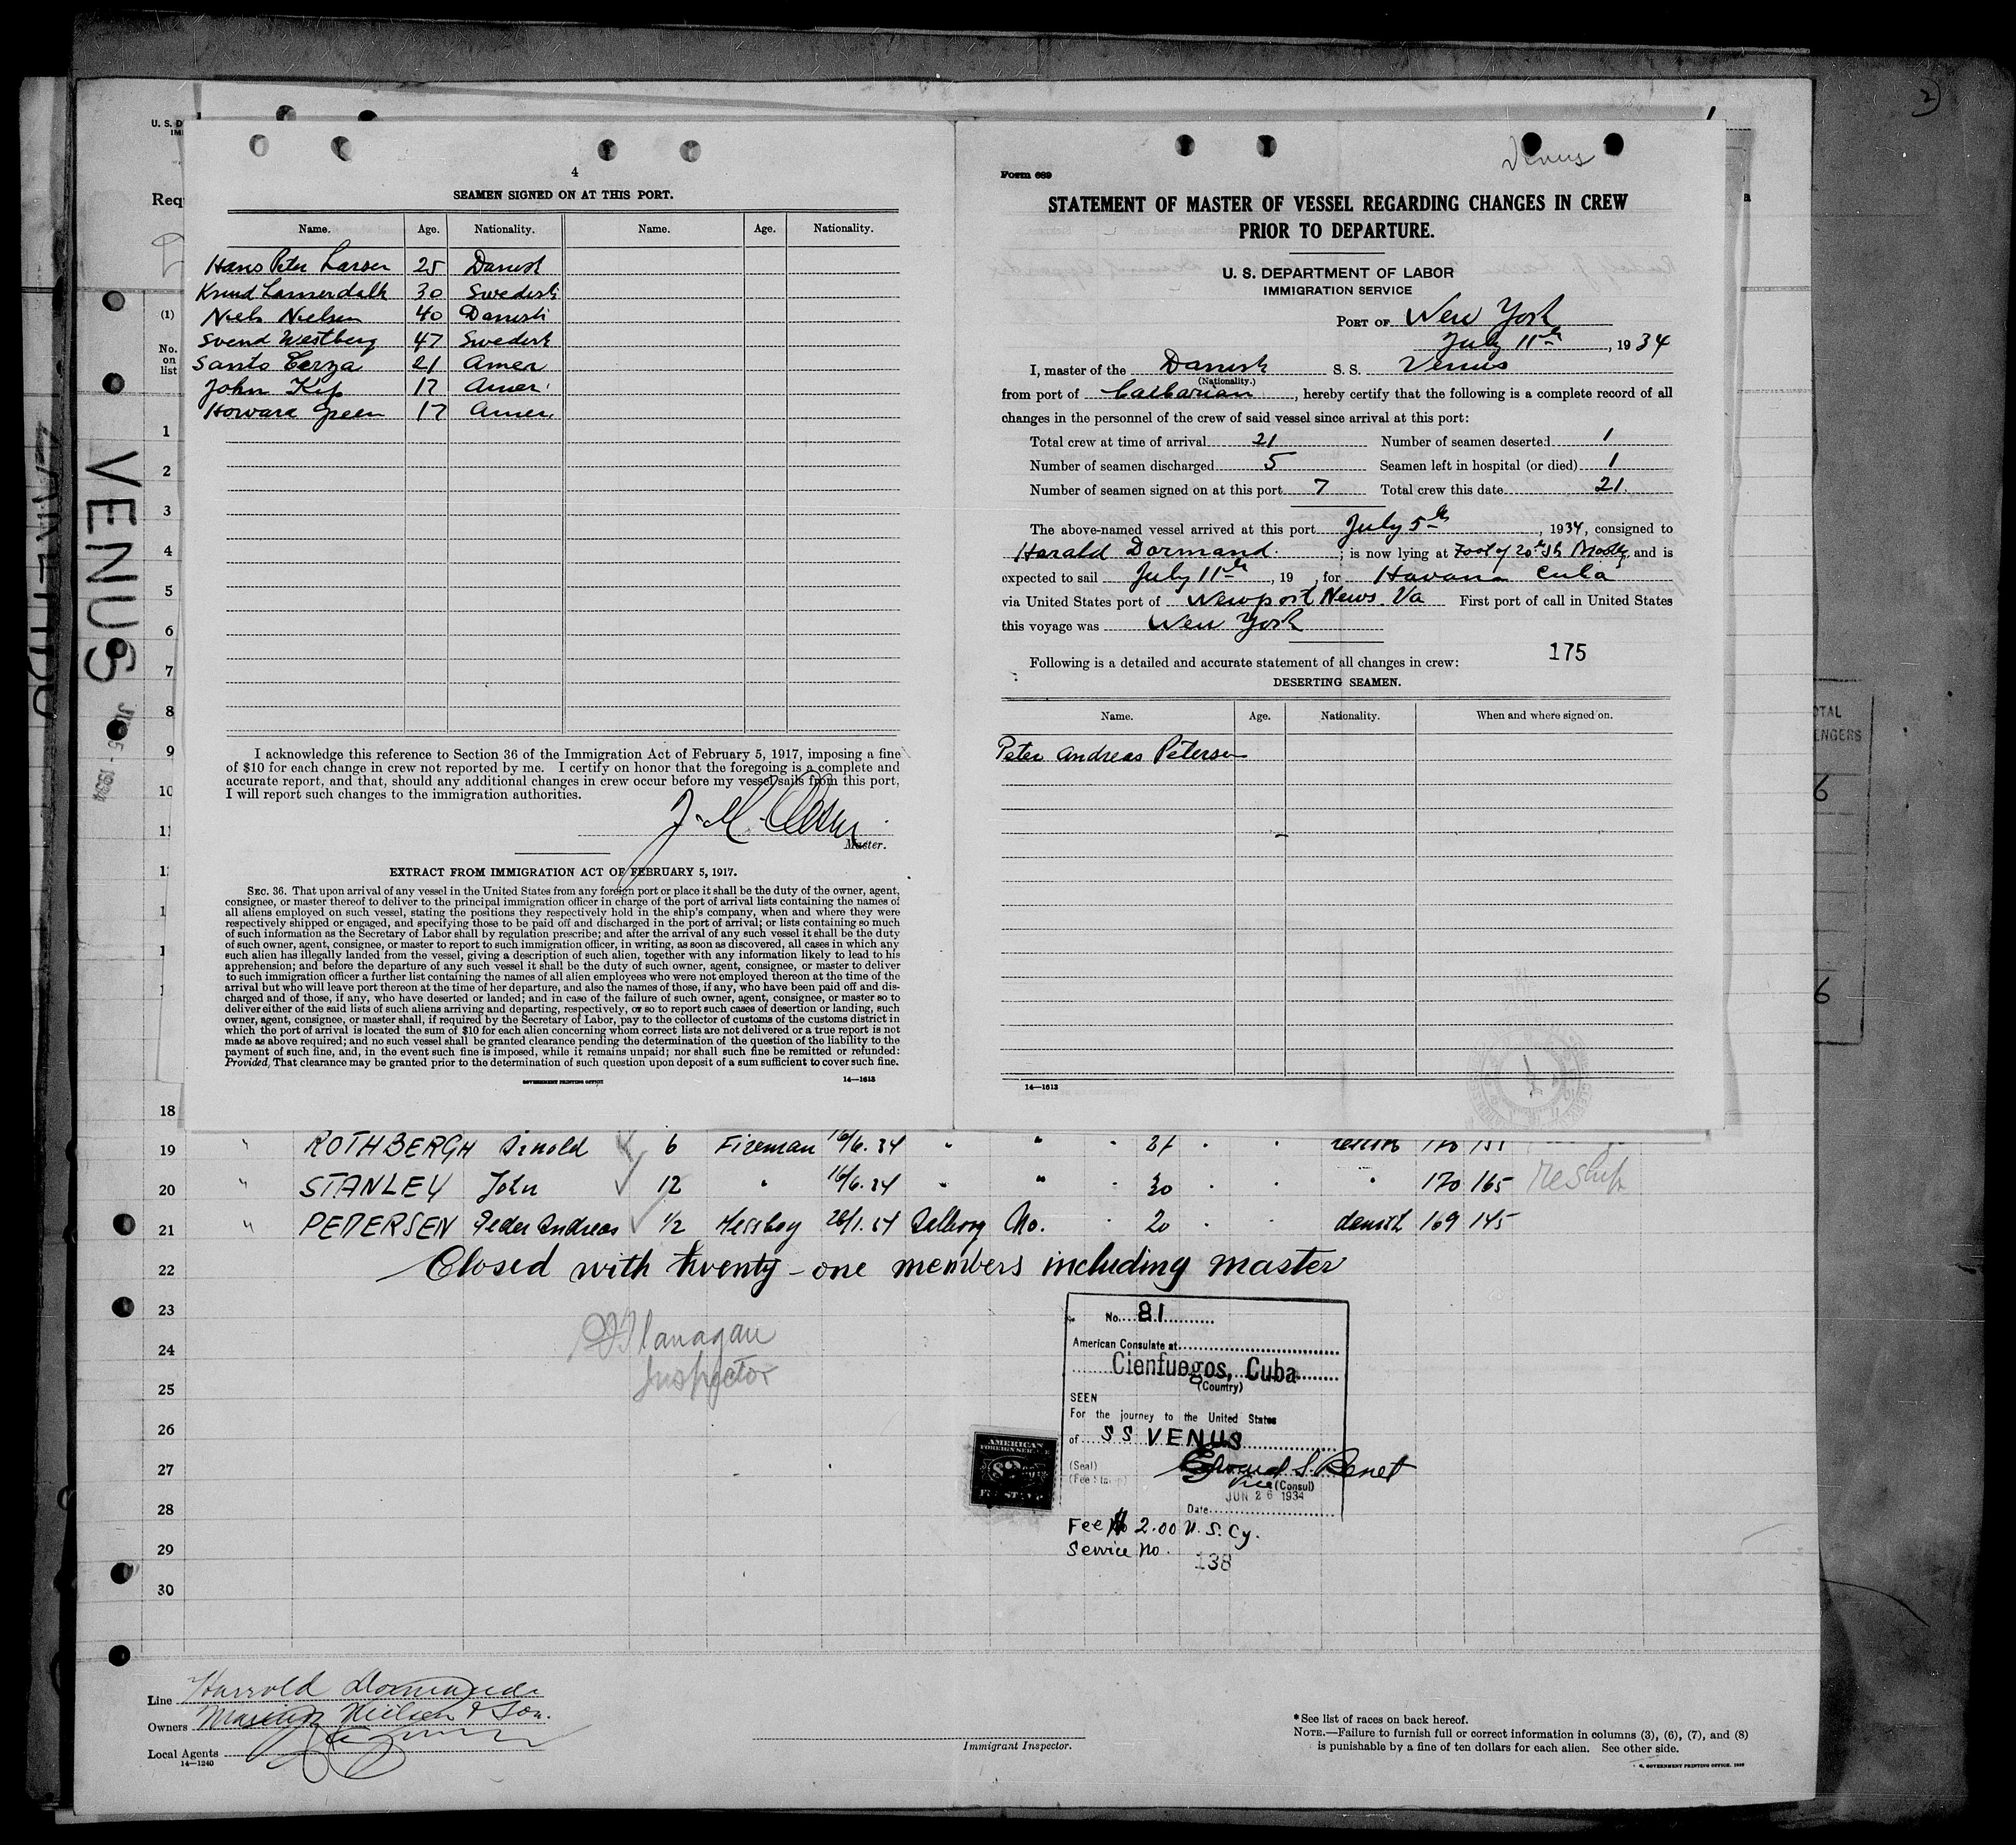 4
SEAMEN SIGNED ON AT THIS PORT.
Name. Age. Nationality. Name. Age. Nationality.
Hans Peter Larsen 25 Danish
Knud Lannerdalh 30 Swedish
Niels Nielsen 40 Danish
Svend Westberg 47 Swedish
Santo Terza 21 Amer
John Kip 17 Amer.
Howard Green 17 Amer.
I acknowledge this reference to Section 36 of the Immigration Act of February 5, 1917, imposing a fine
of $10 for each change in crew not reported by me. I certify on honor that the foregoing is a complete and
accurate report, and that, should any additional changes in crew occur before my vessel sails from this port,
I will report such changes to the immigration authorities.
Master.
EXTRACT FROM IMMIGRATION ACT OF FEBRUARY 5, 1917.
SEC. 36. That upon arrival of any vessel in the United States from any foreign port or place it shall be the duty of the owner, agent,
consignee, or master thereof to deliver to the principal immigration officer in charge of the port of arrival lists containing the names of
all aliens employed on such vessel, stating the positions they respectively hold in the ship's company, when and where they were
respectively shipped or engaged, and specifying those to be paid off and discharged in the port of arrival; or lists containing so much
of such information as the Secretary of Labor shall by regulation prescribe; and after the arrival of any such vessel it shall be the duty
of such owner, agent, consignee, or master to report to such immigration officer, in writing, as soon as discovered, all cases in which any
such alien has illegally landed from the vessel, giving a description of such alien, together with any information likely to lead to his
apprehension; and before the departure of any such vessel it shall be the duty of such owner, agent, consignee, or master to deliver
to such immigration officer a further list containing the names of all alien employees who were not employed thereon at the time of the
arrival but who will leave port thereon at the time of her departure, and also the names of those, if any, who have been paid off and dis-
charged and of those, if any, who have deserted or landed; and in case of the failure of such owner, agent, consignee, or master so to
deliver either of the said lists of such aliens arriving and departing, respectively, or so to report such cases of desertion or landing, such
owner, agent, consignee, or master shall, if required by the Secretary of Labor, pay to the collector of customs of the customs district in
which the port of arrival is located the sum of $10 for each alien concerning whom correct lists are not delivered or a true report is not
made as above required; and no such vessel shall be granted clearance pending the determination of the question of the liability to the
payment of such fine, and, in the event such fine is imposed, while it remains unpaid; nor shall such fine be remitted or refunded:
Provided, That clearance may be granted prior to the determination of such question upon deposit of a sum sufficient to cover such fine.
GOVERNMENT PRINTING OFFICE 14—1613
Venus
Form 689
STATEMENT OF MASTER OF VESSEL REGARDING CHANGES IN CREW
PRIOR TO DEPARTURE.
U. S. DEPARTMENT OF LABOR
IMMIGRATION SERVICE
PORT OF New York
July 11th, 1934
I, master of the Danish S. S. Venus
(Nationality.)
from port of Caibarian, hereby certify that the following is a complete record of all
changes in the personnel of the crew of said vessel since arrival at this port:
Total crew at time of arrival 21 Number of seamen deserted 1
Number of seamen discharged 5 Seamen left in hospital (or died) 1
Number of seamen signed on at this port 7 Total crew this date 21.
The above-named vessel arrived at this port July 5th, 1934, consigned to
Harald Dormand; is now lying at Foot of 20th St. Brookly, and is
expected to sail July 11th, 19 , for Havana Cuba
via United States port of Newport News. Va First port of call in United States
this voyage was New York
175
Following is a detailed and accurate statement of all changes in crew:
DESERTING SEAMEN.
Name. Age. Nationality. When and where signed on.
Peter Andreas Petersen
14—1613
U. S. D
IM
Req
(1)
No.
on
list
VENUS
1
2
3
4
5
6
7
8
9
10
18
19 " ROTHBERGH Arnold 6 Fireman 16/6.34
20 " STANLEY John 12 " 16/6.34 " " 30 170 165 reship
21 " PEDERSEN Peder Andreas 1/2 Messboy Aalborg No. 20 danish 169 145
22 Closed with twenty-one members including master
23
24 Flanagan
25 Inspector
26
27
28
29
30
No. 81
American Consulate at
Cienfuegos, Cuba
(Country)
SEEN
For the journey to the United States
of SS VENUS
(Seal)
Edward S. Benet
Vice (Consul)
JUN 26 1934
Date
Fee No 2.00 U.S.Cy.
Service No. 138
AMERICAN
FOREIGN SERVICE
$2
FEE STAMP
Line Harrold Dormand
Owners Marius Nielsen & Son.
Local Agents
14—1240
Immigrant Inspector.
*See list of races on back hereof.
NOTE.—Failure to furnish full or correct information in columns (3), (6), (7), and (8)
is punishable by a fine of ten dollars for each alien. See other side.